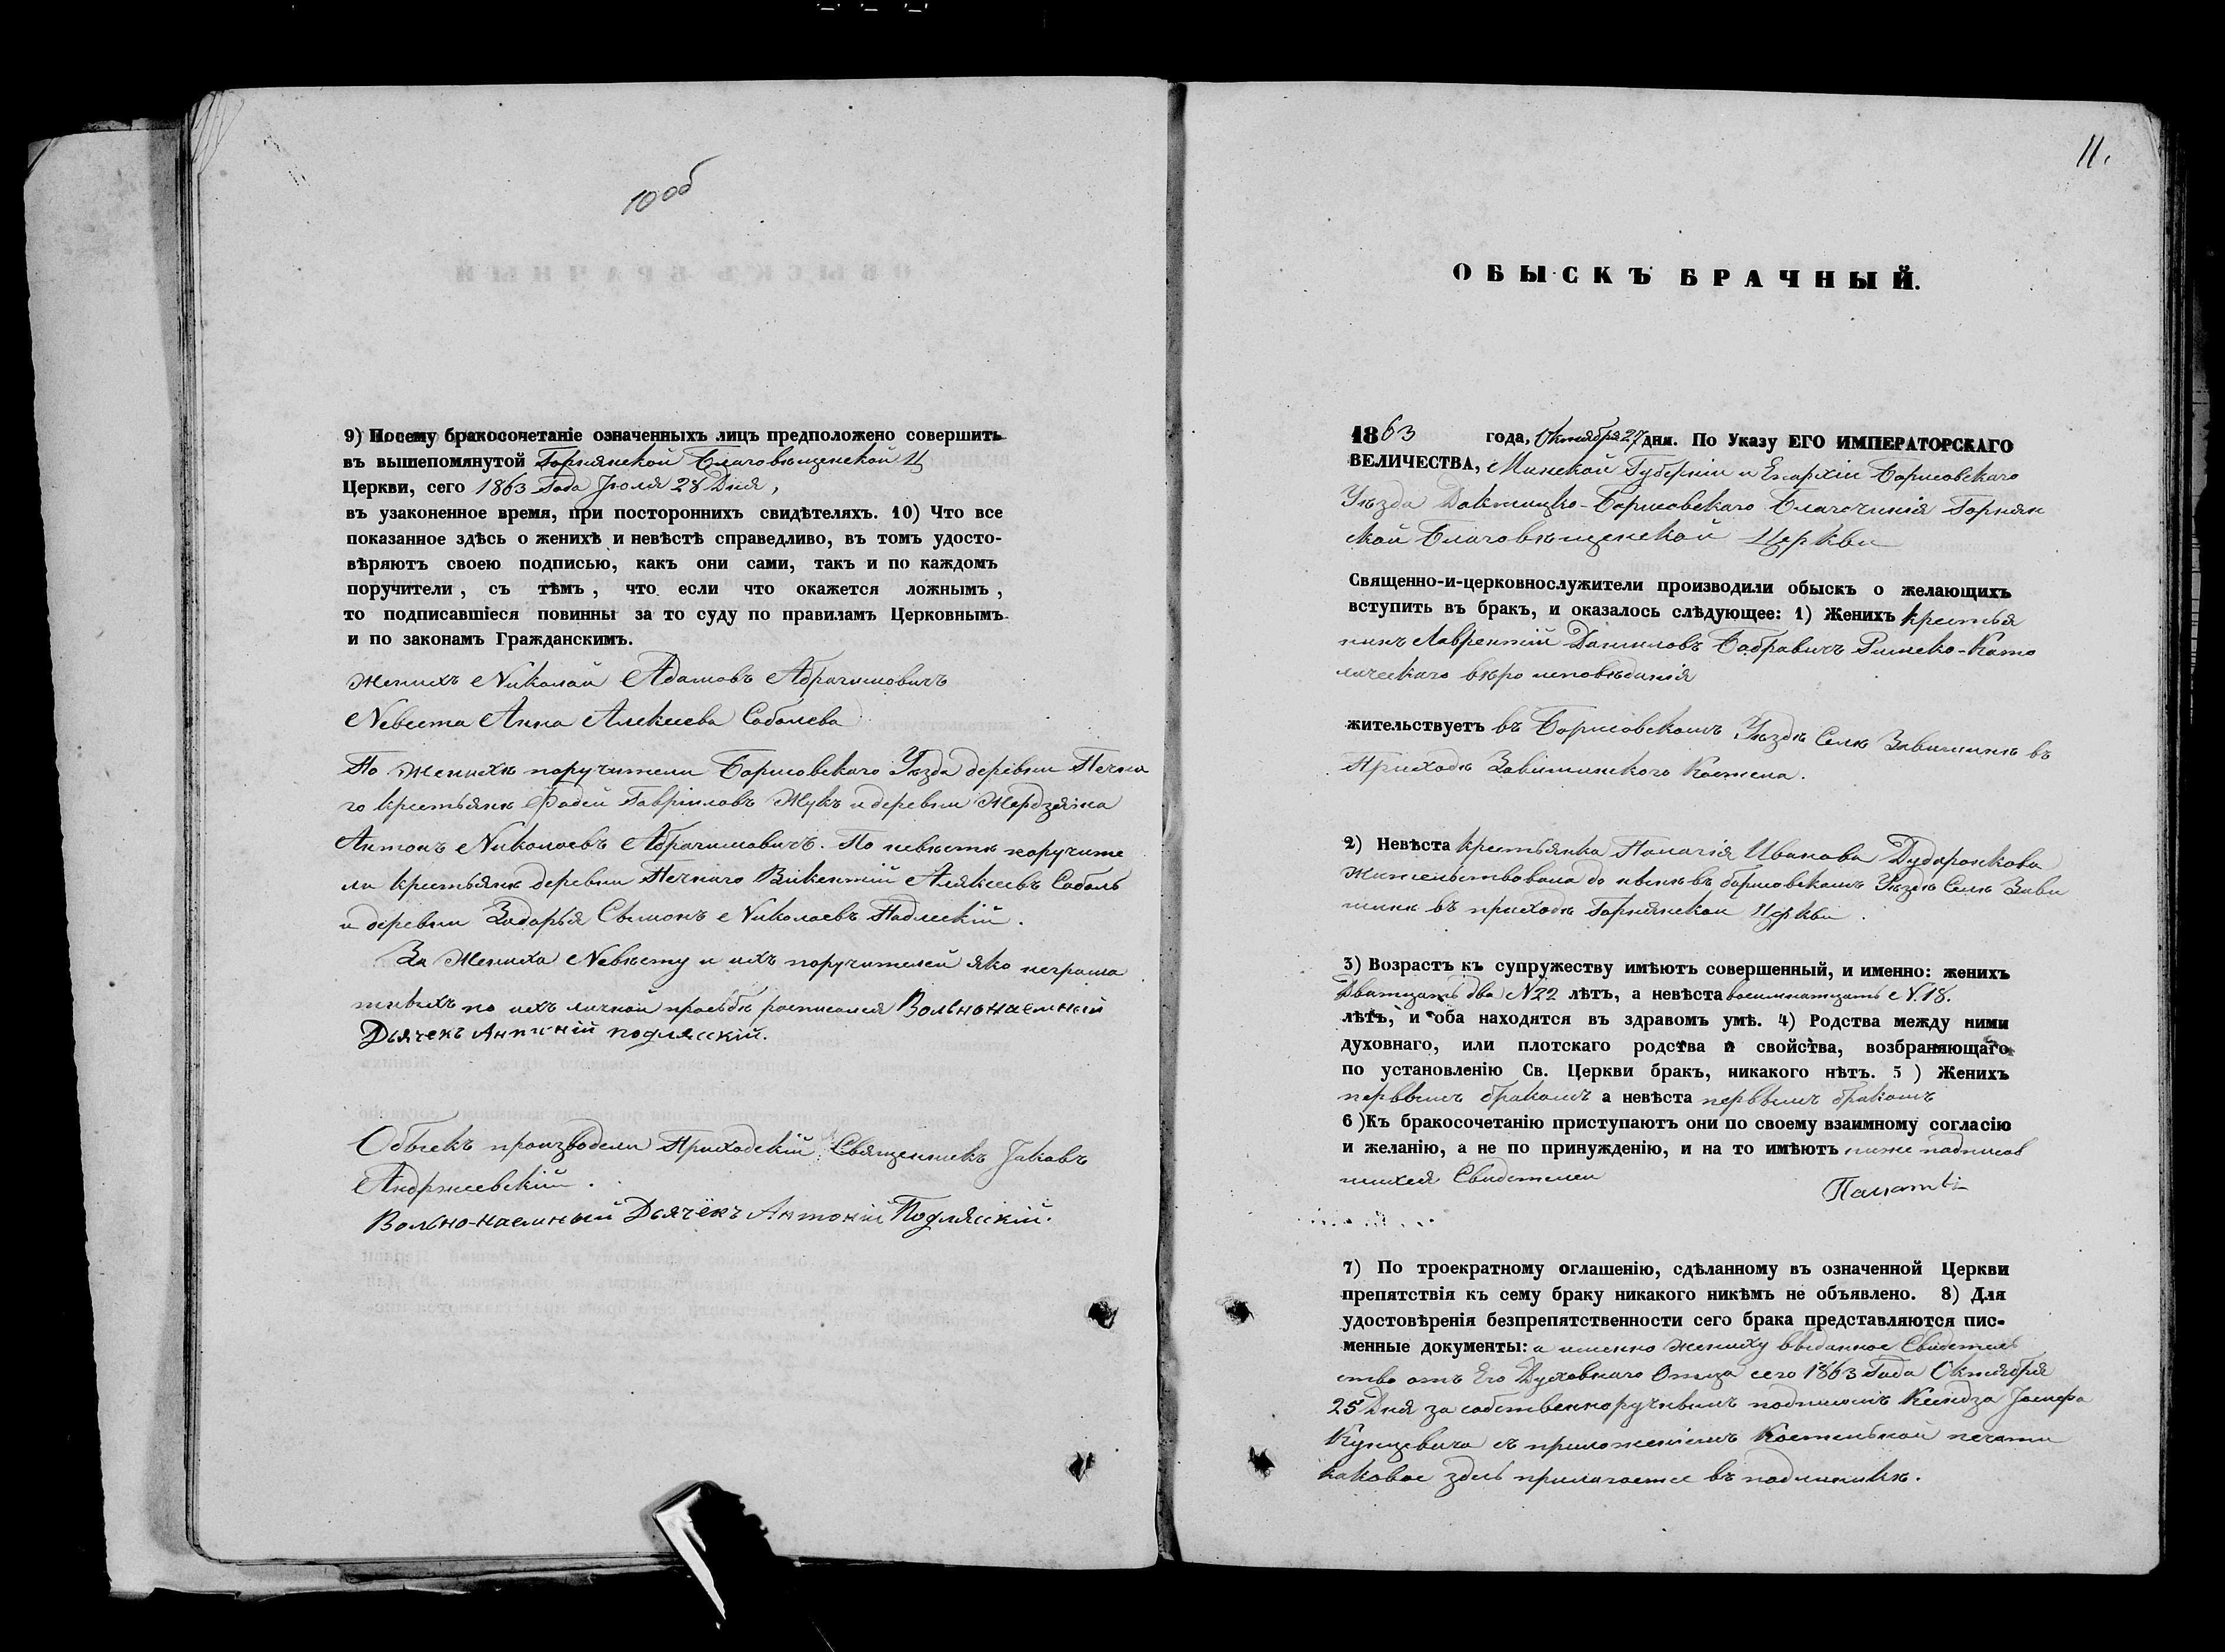 10 об
9) Посему бракосочетаніе означенныхъ лицъ предположено совершить
въ вышепомянутой Горнянской Благовѣщенской Ц
Церкви, сего 1863 Года Іюля 28 Дня,
въ узаконенное время, при постороннихъ свидѣтеляхъ. 10) Что все
показанное здѣсь о женихѣ и невѣстѣ справедливо, въ томъ удосто-
вѣряютъ своею подписью, какъ они сами, такъ и по каждомъ
поручители, съ тѣмъ, что если что окажется ложнымъ,
то подписавшіеся повинны за то суду по правиламъ Церковнымъ
и по законамъ Гражданскимъ.
Женихъ Николай Адамовъ Абрагимовичъ
Невеста Анна Алексеева Соболева
По Женихѣ поручители Борисовскаго Уѣзда деревни Печна
го крестьянѣ Фадей Гавріиловъ Жукъ и деревни Мердзеяка
Антонъ Николаевъ Абрагимовичъ. По невѣстѣ поручите
ли крестьянѣ деревни Печнаго Викентій Алексеевъ Соболь
и деревни Задорья Сымонъ Николаевъ Подлескій.
За Жениха Невѣсту и ихъ поручителей яко неграмо
тныхъ по ихъ личной просьбѣ росписался Вольнонаемный
Дьячекъ Антоній Подлясскій.
Обыскъ производили Приходскій Священникъ Іаковъ
Андржеевскій.
Вольно-наемный Дьячекъ Антоній Подлясскій.
11.
ОБЫСКЪ БРАЧНЫЙ.
1863 года, Октября 27 дня. По Указу ЕГО ИМПЕРАТОРСКАГО
ВЕЛИЧЕСТВА, Минской Губерніи и Епархіи Борисовскаго
Уѣзда Докшицко-Борисовскаго Благочинія Горнян
ской Благовѣщенской Церкви
Священно-и-церковнослужители производили обыскъ о желающихъ
вступить въ бракъ, и оказалось слѣдующее: 1) Женихъ крестья
нинъ Лаврентій Даниловъ Бобравичъ Римско-Като
лическаго вѣроисповѣданія
жительствуетъ въ Борисовскомъ Уѣздѣ Селѣ Завишинѣ въ
Приходѣ Завишинского Костела.
2) Невѣста крестьянка Палагія Иванова Дударонкова
Жительствовала до нынѣ въ борисовскомъ Уѣздѣ Селѣ Зави
шинѣ въ приходѣ Горнянской Церкви.
3) Возрастъ къ супружеству имѣютъ совершенный, и именно: женихъ
Дватцать два N22 лѣтъ, а невѣста восимнатцать N.18.
лѣтъ, и оба находятся въ здравомъ умѣ. 4) Родства между ними
духовнаго, или плотскаго родства и свойства, возбраняющаго
по установленію Св. Церкви бракъ, никакого нѣтъ. 5 ) Женихъ
первымъ бракомъ а невѣста первымъ бракомъ
6 )Къ бракосочетанію приступаютъ они по своему взаимному согласію
и желанію, а не по принужденію, и на то имѣютъ ниже подписав
шихся Свидетелей
7) По троекратному оглашенію, сдѣланному въ означенной Церкви
препятствія къ сему браку никакого никѣмъ не объявлено. 8) Для
удостовѣренія безпрепятственности сего брака представляются пис-
менные документы: а именно жениху выданное Свидетель
ство отъ Его Духовнаго Отца сего 1863 Года Октября
25 Дня за собственноручнымъ подписомъ Ксендза Іосифа
Кунцевича съ приложеніемъ Костельной печати
каковое здесь прилагается въ подлинникѣ.